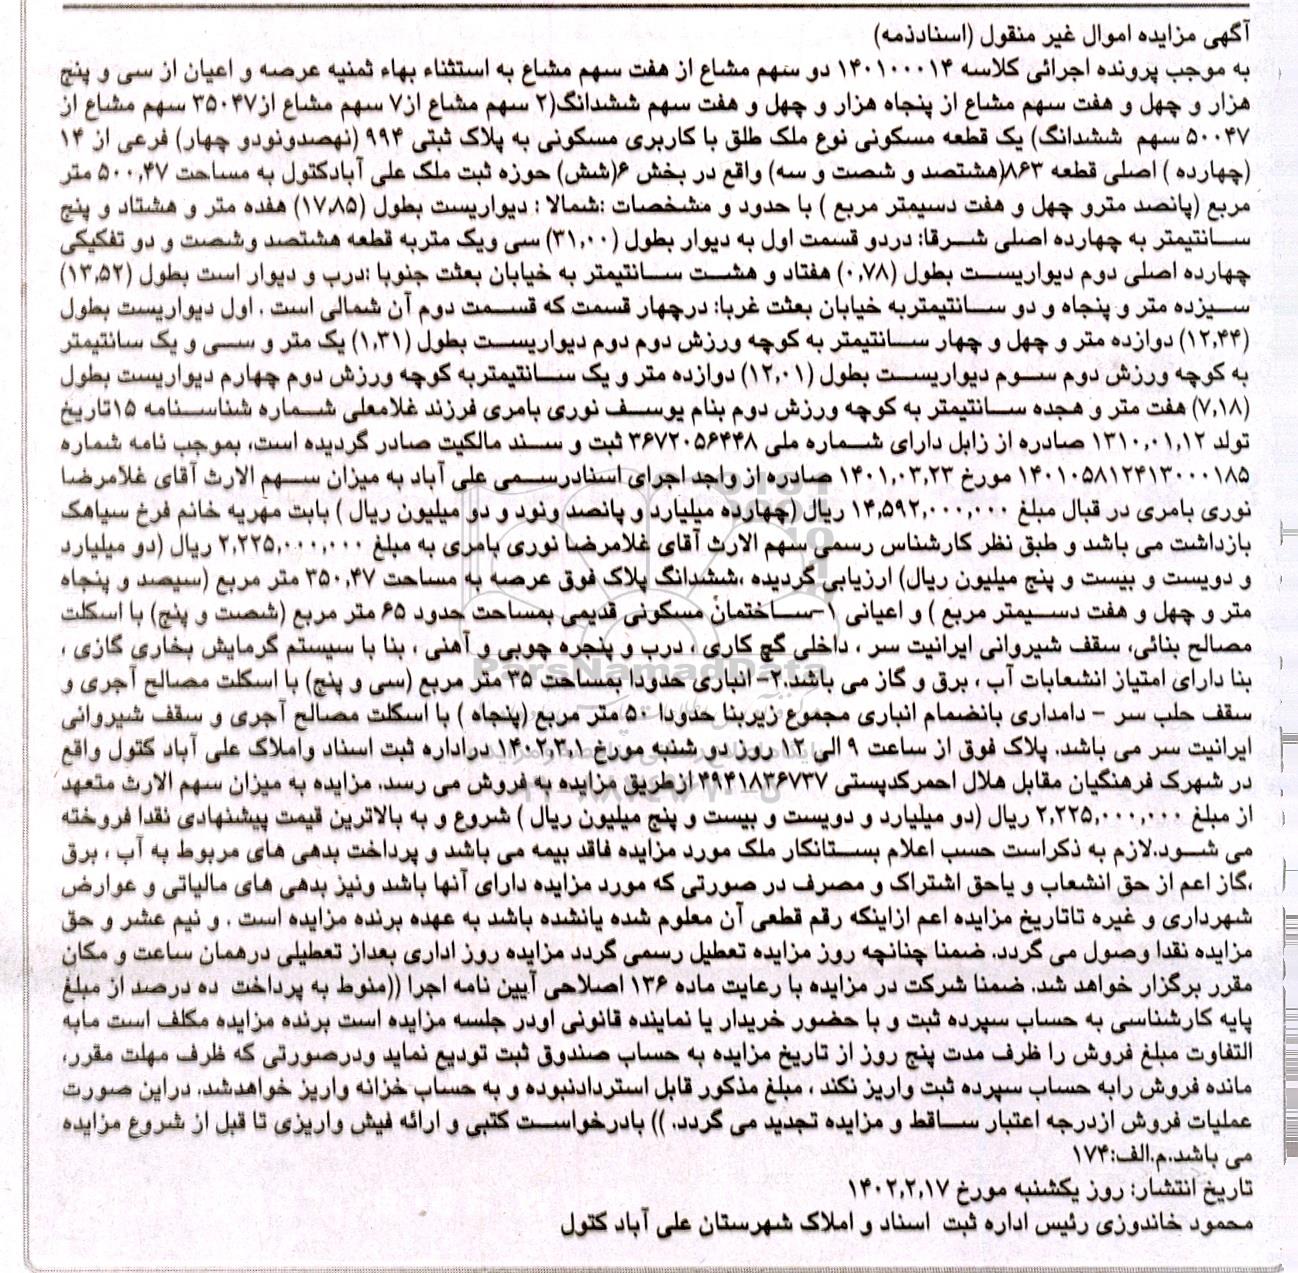 آگهی مزایده اموال غیر منقول (اسنادذمه)
به موجب پرونده اجرائی کلاسه ۱۴۰۱۰۰۰۱۴ دو سهم مشاع از هفت سهم مشاع به استثناء بهاء ثمنیه عرصه و اعیان از سی و پنج
هزار و چهل و هفت سهم مشاع از پنجاه هزار و چهل و هفت سهم ششدانگ(۲ سهم مشاع از۷ سهم مشاع از۳۵۰۴۷ سهم مشاع از
۵۰۰۴۷ سهم ششدانگ) یک قطعه مسکونی نوع ملک طلق با کاربری مسکونی به پلاک ثبتی ۹۹۴ (نهصدونودو چهار) فرعی از ۱۴
(چهارده ) اصلی قطعه ۸۶۳(هشتصد و شصت و سه) واقع در بخش ۶(شش) حوزه ثبت ملک علی آبادکتول به مساحت ۵۰۰,۴۷ متر
مربع (پانصد مترو چهل و هفت دسیمتر مربع ) با حدود و مشخصات :شمالا : دیواریست بطول (۱۷,۸۵) هفده متر و هشتاد و پنج
سانتیمتر به چهارده اصلی شرقا: دردو قسمت اول به دیوار بطول (۳۱,۰۰) سی ویک متربه قطعه هشتصد وشصت و دو تفکیکی
چهارده اصلی دوم دیواریست بطول (۰,۷۸) هفتاد و هشت سانتیمتر به خیابان بعثت جنوبا :درب و دیوار است بطول (۱۳,۵۲)
سیزده متر و پنجاه و دو سانتیمتربه خیابان بعثت غربا: درچهار قسمت که قسمت دوم آن شمالی است . اول دیواریست بطول
(۱۲,۴۴) دوازده متر و چهل و چهار سانتیمتر به کوچه ورزش دوم دوم دیواریست بطول (۱,۳۱) یک متر و سی و یک سانتیمتر
به کوچه ورزش دوم سوم دیواریست بطول (۱۲,۰۱) دوازده متر و یک سانتیمتربه کوچه ورزش دوم چهارم دیواریست بطول
(۷,۱۸) هفت متر و هجده سانتیمتر به کوچه ورزش دوم بنام یوسف نوری بامری فرزند غلامعلی شماره شناسنامه ۱۵تاریخ
تولد ۱۳۱۰,۰۱,۱۲ صادره از زابل دارای شماره ملی ۳۶۷۲۰۵۶۴۴۸ ثبت و سند مالکیت صادر گردیده است، بموجب نامه شماره
۱۴۰۱۰۵۸۱۲۴۱۳۰۰۰۱۸۵ مورخ ۱۴۰۱,۰۳,۲۳ صادره از واجد اجرای اسنادرسمی علی آباد به میزان سهم الارث آقای غلامرضا
نوری بامری در قبال مبلغ ۱۴,۵۹۲,۰۰۰,۰۰۰ ریال (چهارده میلیارد و پانصد ونود و دو میلیون ریال ) بابت مهریه خانم فرخ سیاهک
بازداشت می باشد و طبق نظر کارشناس رسمی سهم الارث آقای غلامرضا نوری بامری به مبلغ ۲,۲۲۵,۰۰۰,۰۰۰ ریال (دو میلیارد
و دویست و بیست و پنج میلیون ریال) ارزیابی گردیده ،ششدانگ پلاک فوق عرصه به مساحت ۳۵۰,۴۷ متر مربع (سیصد و پنجاه
متر و چهل و هفت دسیمتر مربع ) و اعیانی ۱-ساختمان مسکونی قدیمی بمساحت حدود ۶۵ متر مربع (شصت و پنج) با اسکلت
مصالح بنائی، سقف شیروانی ایرانیت سر ، داخلی گچ کاری ، درب و پنجره چوبی و آهنی ، بنا با سیستم گرمایش بخاری گازی ،
بنا دارای امتیاز انشعابات آب ، برق و گاز می باشد.۲- انباری حدودا بمساحت ۳۵ متر مربع (سی و پنج) با اسکلت مصالح آجری و
سقف حلب سر – دامداری بانضمام انباری مجموع زیربنا حدودا ۵۰ متر مربع (پنجاه ) با اسکلت مصالح آجری و سقف شیروانی
ایرانیت سر می باشد. پلاک فوق از ساعت ۹ الی ۱۲ روز دو شنبه مورخ ۱۴۰۲,۳,۱ دراداره ثبت اسناد واملاک علی آباد کتول واقع
در شهرک فرهنگیان مقابل هلال احمرکدپستی ۴۹۴۱۸۳۶۷۳۷ ازطریق مزایده به فروش می رسد. مزایده به میزان سهم الارث متعهد
از مبلغ ۲,۲۲۵,۰۰۰,۰۰۰ ریال (دو میلیارد و دویست و بیست و پنج میلیون ریال ) شروع و به بالاترین قیمت پیشنهادی نقدا فروخته
می شود.لازم به ذکراست حسب اعلام بستانکار ملک مورد مزایده فاقد بیمه می باشد و پرداخت بدهی های مربوط به آب ، برق
،گاز اعم از حق انشعاب و یاحق اشتراک و مصرف در صورتی که مورد مزایده دارای آنها باشد ونیز بدهی های مالیاتی و عوارض
شهرداری و غیره تاتاریخ مزایده اعم ازاینکه رقم قطعی آن معلوم شده یانشده باشد به عهده برنده مزایده است . و نیم عشر و حق
مزایده نقدا وصول می گردد. ضمنا چنانچه روز مزایده تعطیل رسمی گردد مزایده روز اداری بعداز تعطیلی درهمان ساعت و مکان
مقرر برگزار خواهد شد. ضمنا شرکت در مزایده با رعایت ماده ۱۳۶ اصلاحی آیین نامه اجرا ((منوط به پرداخت ده درصد از مبلغ
پایه کارشناسی به حساب سپرده ثبت و با حضور خریدار یا نماینده قانونی اودر جلسه مزایده است برنده مزایده مکلف است مابه
التفاوت مبلغ فروش را ظرف مدت پنج روز از تاریخ مزایده به حساب صندوق ثبت تودیع نماید ودرصورتی که ظرف مهلت مقرر،
مانده فروش رابه حساب سپرده ثبت واریز نکند ، مبلغ مذکور قابل استردادنبوده و به حساب خزانه واریز خواهدشد. دراین صورت
عملیات فروش ازدرجه اعتبار ساقط و مزایده تجدید می گردد. )) بادرخواست کتبی و ارائه فیش واریزی تا قبل از شروع مزایده
می باشد.م.الف:۱۷۴
تاریخ انتشار: روز یکشنبه مورخ ۱۴۰۲,۲,۱۷
محمود خاندوزی رئیس اداره ثبت اسناد و املاک شهرستان علی آباد کتول
ParsNamadData